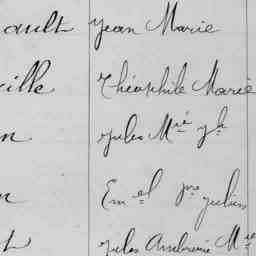 ault Jean Marie
ille Théophile Marie
n Jules Mie Jh
n Emel Jn Julien
t Jules Ambroise Mie